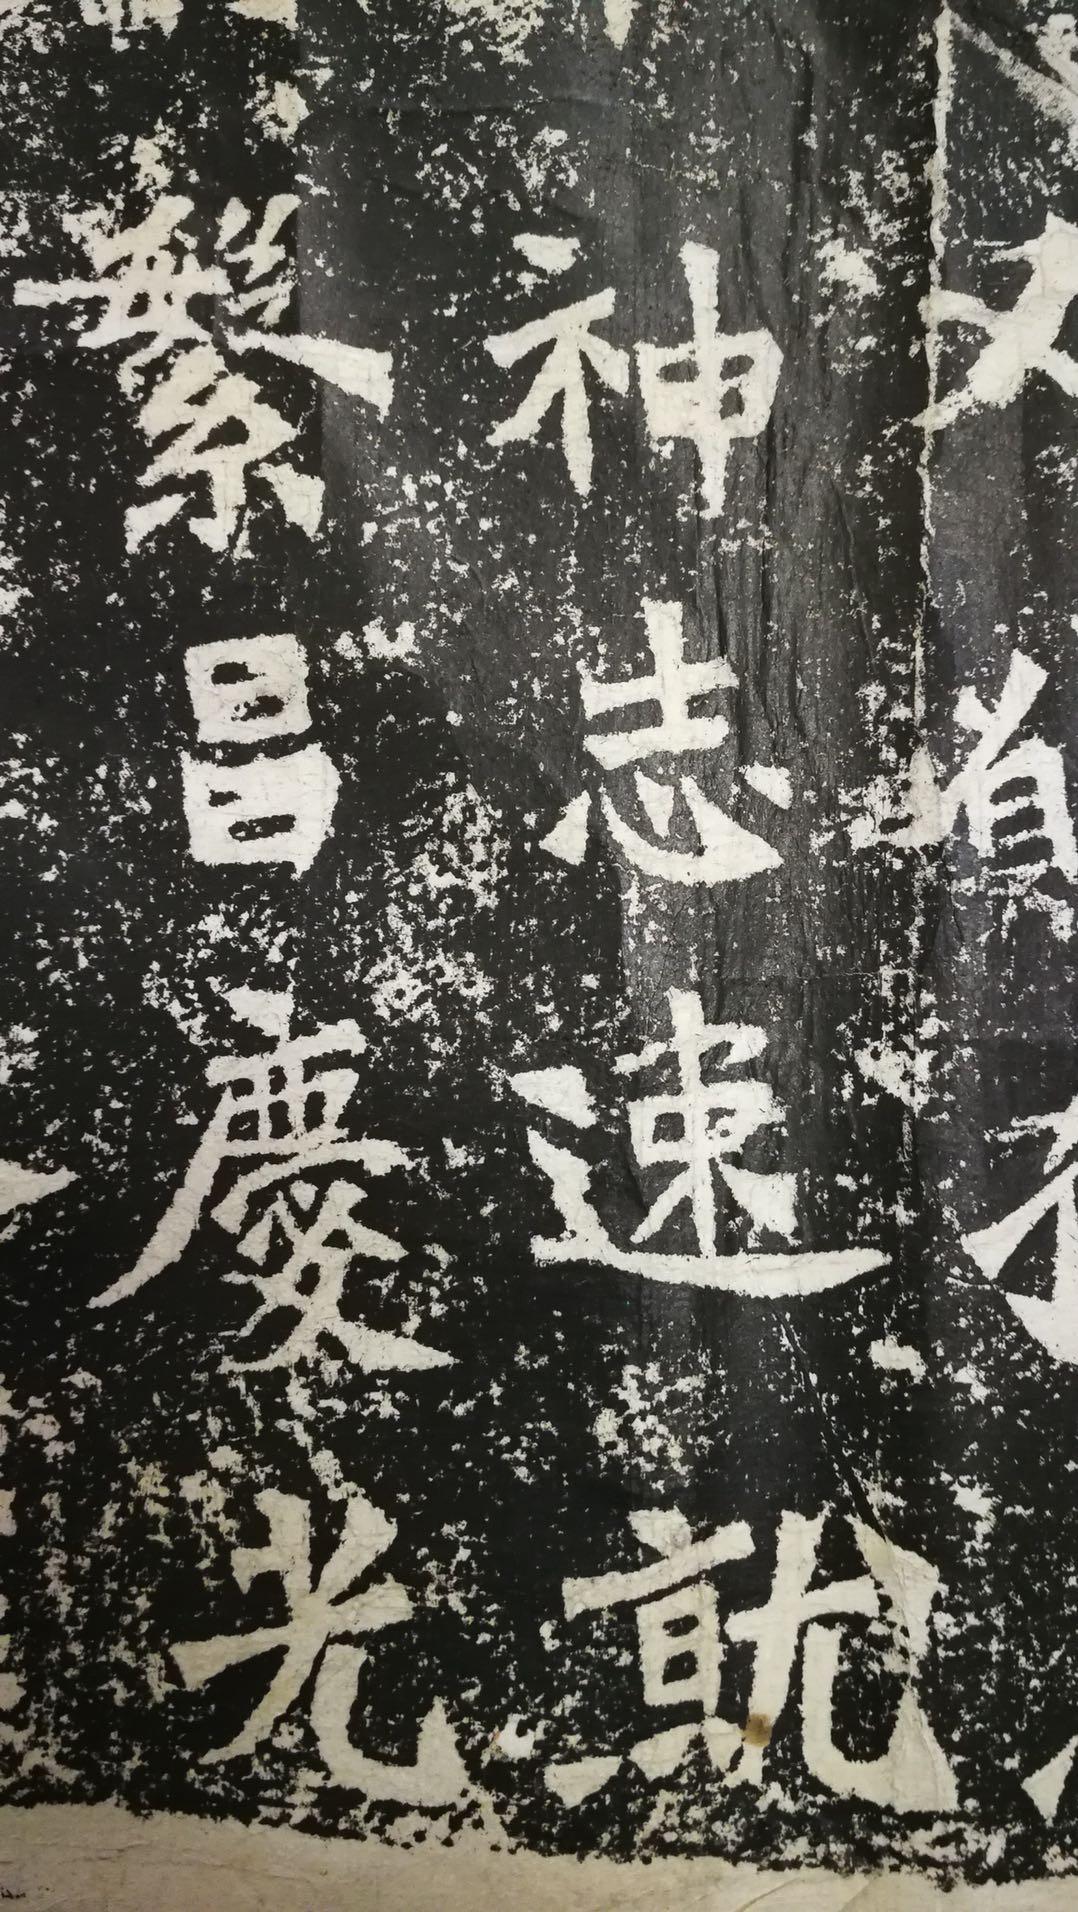 神志速就
繁昌慶光